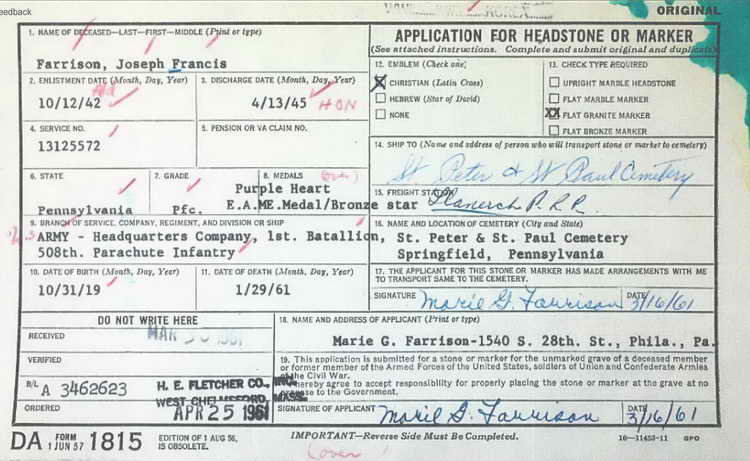 eedback
ORIGINAL
1. NAME OF DECEASED—LAST—FIRST—MIDDLE (Print or type)
Farrison, Joseph Francis
2. ENLISTMENT DATE (Month, Day, Year)
10/12/42
3. DISCHARGE DATE (Month, Day, Year)
4/13/45 HON
4. SERVICE NO.
13125572
5. PENSION OR VA CLAIM NO.
6. STATE
Pennsylvania
7. GRADE
Pfc.
8. MEDALS (over)
Purple Heart
E.A.ME.Medal/Bronze star
9. BRANCH OF SERVICE, COMPANY, REGIMENT, AND DIVISION OR SHIP
US ARMY - Headquarters Company, 1st. Batallion,
508th. Parachute Infantry
10. DATE OF BIRTH (Month, Day, Year)
10/31/19
11. DATE OF DEATH (Month, Day, Year)
1/29/61
APPLICATION FOR HEADSTONE OR MARKER
(See attached instructions. Complete and submit original and duplicate)
12. EMBLEM (Check one)
X CHRISTIAN (Latin Cross)
HEBREW (Star of David)
NONE
13. CHECK TYPE REQUIRED
UPRIGHT MARBLE HEADSTONE
FLAT MARBLE MARKER
XX FLAT GRANITE MARKER
FLAT BRONZE MARKER
14. SHIP TO (Name and address of person who will transport stone or marker to cemetery)
St Peter & St Paul Cemetery
15. FREIGHT STATION
Llanerch P.R.R.
16. NAME AND LOCATION OF CEMETERY (City and State)
St. Peter & St. Paul Cemetery
Springfield, Pennsylvania
17. THE APPLICANT FOR THIS STONE OR MARKER HAS MADE ARRANGEMENTS WITH ME
TO TRANSPORT SAME TO THE CEMETERY.
SIGNATURE Marie G. Farrison DATE 3/16/61
DO NOT WRITE HERE
RECEIVED MAR 30 1961
VERIFIED
B/L A 3462623
H. E. FLETCHER CO., INC.
WEST CHELMSFORD, MASS.
ORDERED APR 25 1961
18. NAME AND ADDRESS OF APPLICANT (Print or type)
Marie G. Farrison-1540 S. 28th. St., Phila., Pa.
19. This application is submitted for a stone or marker for the unmarked grave of a deceased member
or former member of the Armed Forces of the United States, soldiers of Union and Confederate Armies
of the Civil War.
hereby agree to accept responsibility for properly placing the stone or marker at the grave at no
to the Government.
SIGNATURE OF APPLICANT Marie G. Farrison DATE 3/16/61
DA FORM 1 JUN 57 1815
EDITION OF 1 AUG 56, IS OBSOLETE.
IMPORTANT—Reverse Side Must Be Completed.
16—11453-11 GPO
(over)